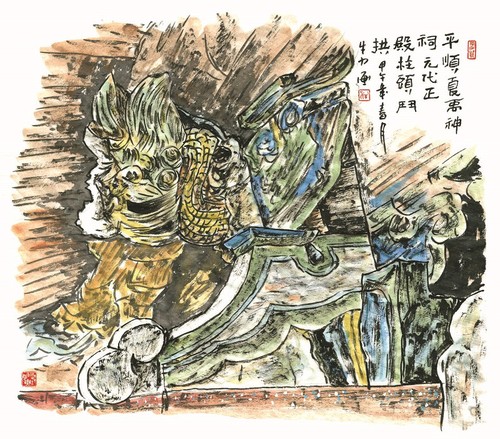 平順夏禹神
祠元代正
殿柱頭鬥
拱甲午年春月
牛力画